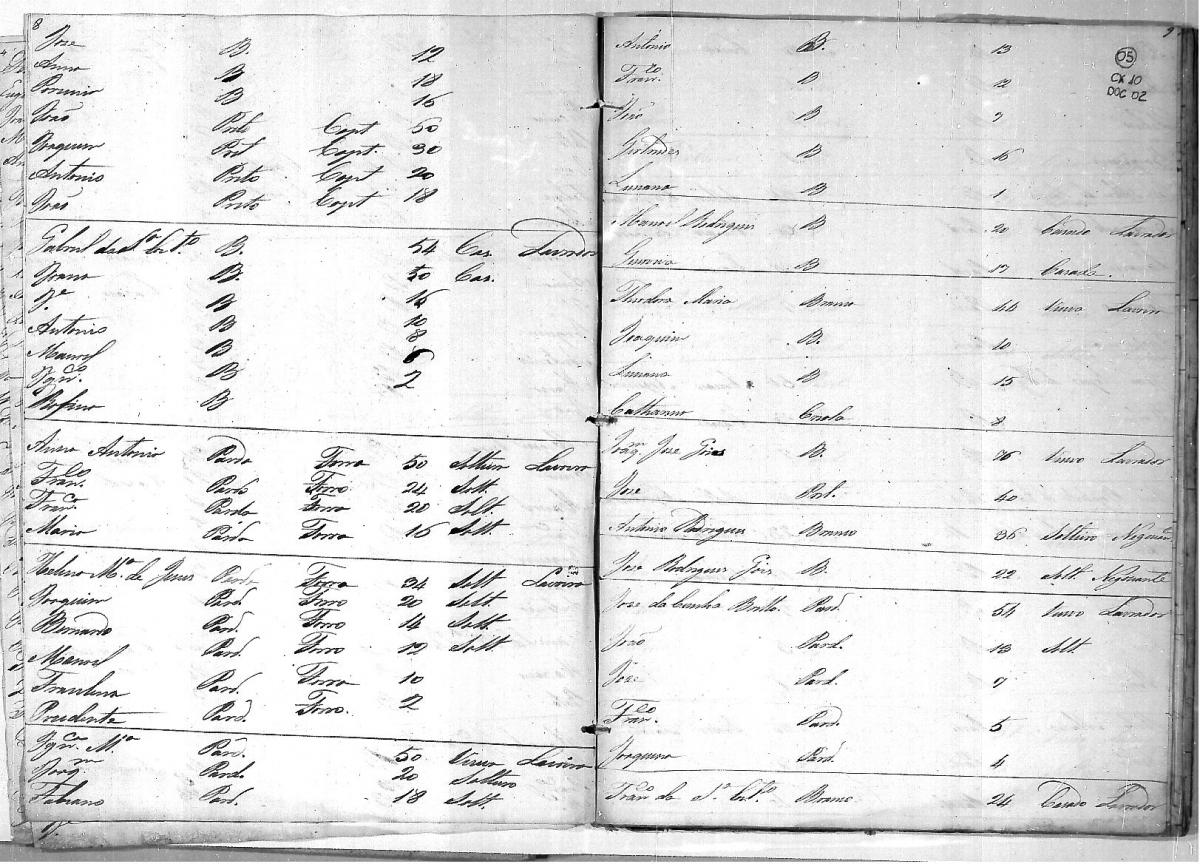 8
Jose B. 12
Anna B 18
B 16
João Preto Capt 50
Joaquim Pret Capt. 30
Antonio Preto Capt 20
João Preto Capt 18
Gabriel da S.ª B. 54 Cas Lavrador
Joana B. 30 Cas.
J.e B 16
Antonio B 10
Manoel B 8
Ign.co B 6
Rofino B 2
Anna Antonia Parda Forra 50 Solteira Lavora
Fran.co Pardo Forro 24 Solt.
Fran.ca Parda Forra 20 Solt.
Maria Parda Forra 16 Solt.
Helena M.ª de Jesus Parda Forra 34 Solt Lavora
Joaquim Pard. Forro 20 Solt.
Bernardo Pard. Forro 14 Solt.
Manoel Pard. Forro 12 Solt
Franlina Pard. Forra 10
Prudente Pard. Forro. 2
Ign.ca M.ª Pard. 50 Viuva Lavora
Joaq.m Pard. 20 Solteiro
Fabiano Pard. 18 Solt.
J.e
9
05
CX 10
DOC 02
Antonio B. 13
Fran.co B 12
João B 7
Gertrudes B 16
B 1
Manoel Rodrigues B 20 Casado Lavrador
B 17 Casada.
Theodora Maria Branca 44 Viuva Lavora
Joaquim B. 10
B 15
Catharina Criola 8
Joaq.m Jose Gois B. 76 Viuvo Lavrador
Jose Pret. 40
Antonio Rodrigues Branco 36 Solteiro
Jose Rodrigues Gois B. 22 Solt. Negociante
Jose da Cunha Britto Pard. 54 Viuvo Lavrador
João Pard. 13 Solt
Jose Pard. 7
Fran.co Pard. 5
Joaquina Pard. 4
Fran.co da S.ª Branco 24 Casado Lavrador